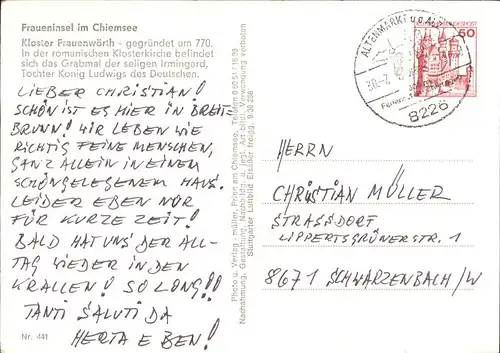 Fraueninsel im Chiemsee
Kloster Frauenwörth - gegründet um 770.
In der romanischen Klosterkirche befindet
sich das Grabmal der seligen Irmingard,
Tochter König Ludwigs des Deutschen.
LIEBER CHRISTIAN!
SCHÖN IST ES HIER IN BREIT-
BRUNN! WIR LEBEN WIE
RICHTIG FEINE MENSCHEN,
GANZ ALLEIN IN EINEM
SCHÖNGELEGENEM HAUS.
LEIDER EBEN NUR
FÜR KURZE ZEIT!
BALD HAT UNS DER ALL-
TAG WIEDER IN DEN
KRALLEN! SO LONG!!
TANTI SALUTI DA
HERTA E BEN!
Nr. 441
Photo u. Verlag: müller, Prien am Chiemsee, Telefon
Nachahmung, Gestaltung, Nachbildg. u. jegl. Art gewerbl. Verwendung verboten
Stuttgarter Luftbild Elsäßer freigg. 9/38 286
ALTENMARKT
8226
60
HERRN
CHRISTIAN MÜLLER
STRASSDORF
LIPPERTSGRÜNERSTR. 1
8671 SCHWARZENBACH/W